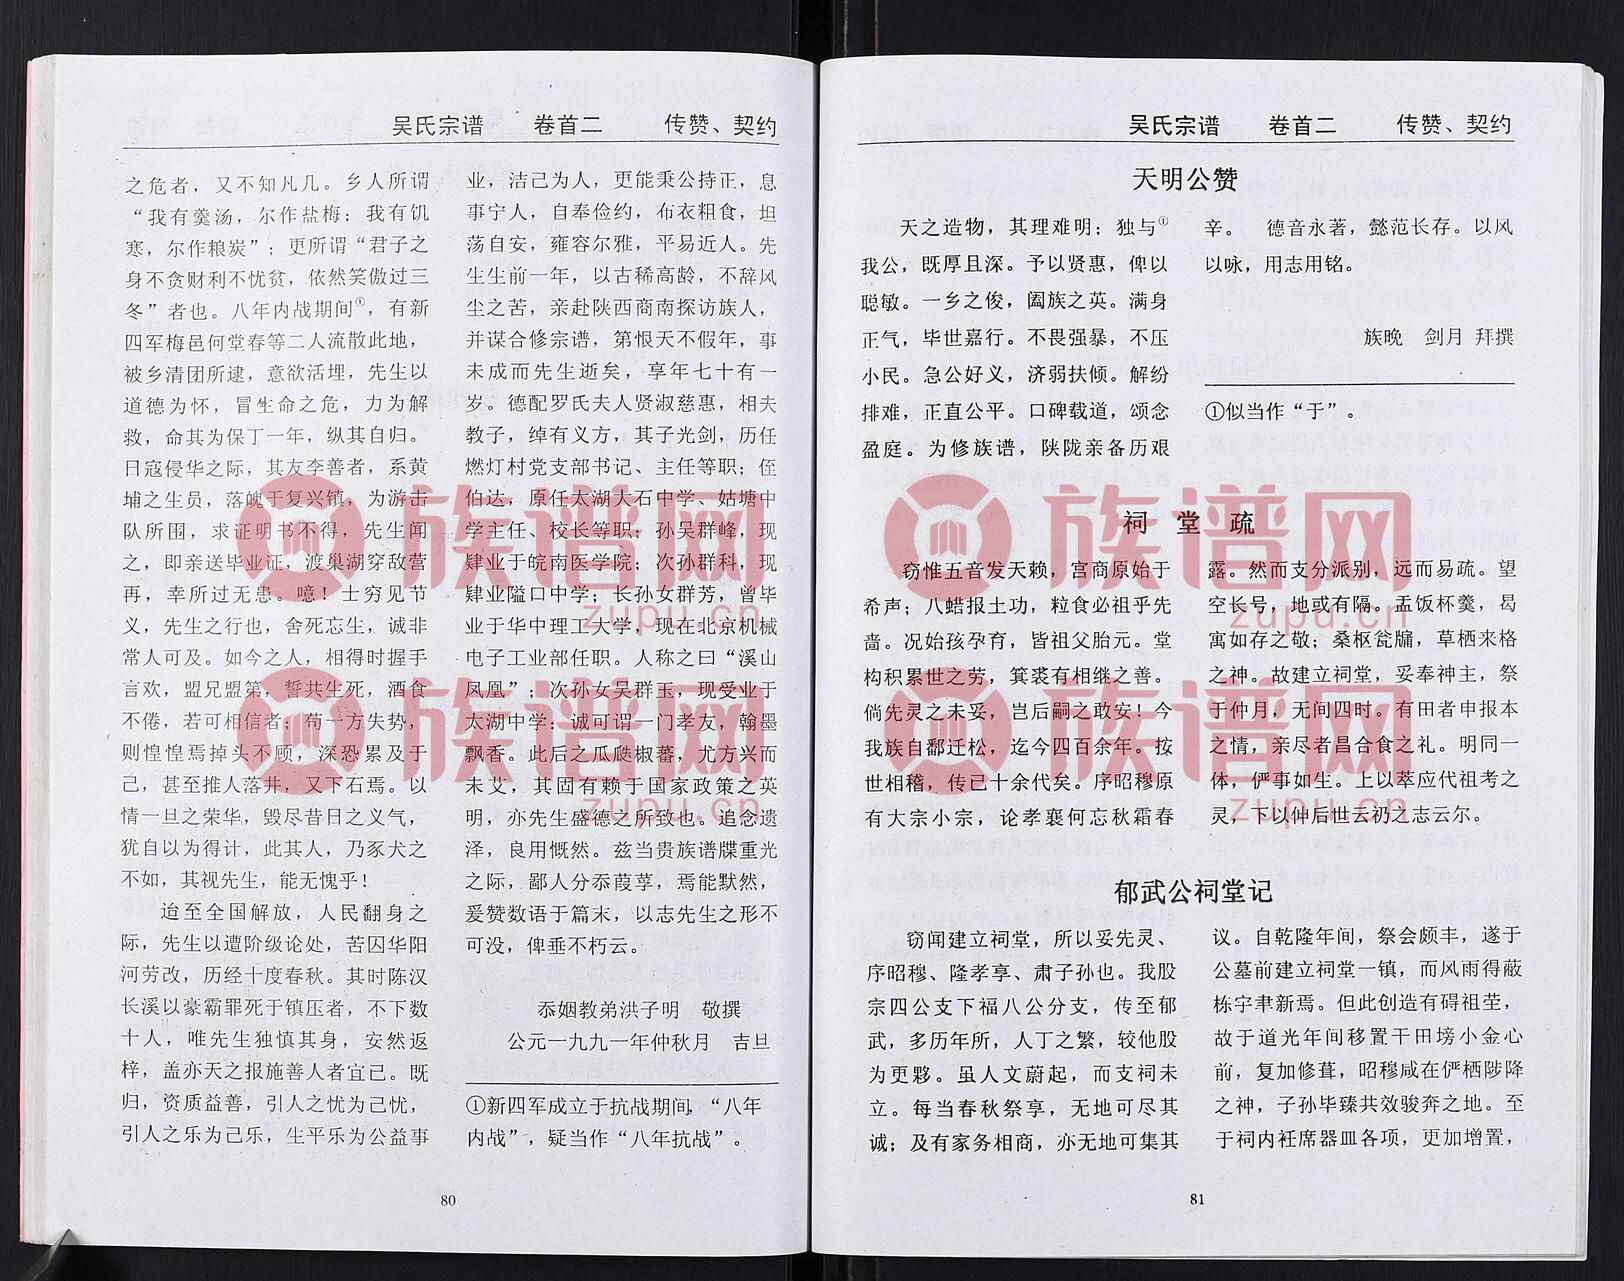 吴氏宗谱 卷首二 传赞、契约
之危者，又不知凡几。乡人所谓
“我有羹汤，尔作盐梅；我有饥
寒，尔作粮炭”；更所谓“君子之
身不贪财利不忧贫，依然笑傲过三
冬”者也。八年内战期间①，有新
四军梅邑何堂春等二人流散此地，
被乡清团所逮，意欲活埋，先生以
道德为怀，冒生命之危，力为解
救，命其为保丁一年，纵其自归。
日寇侵华之际，其友李善者，系黄
埔之生员，落魄于复兴镇，为游击
队所围，求证明书不得，先生闻
之，即亲送毕业证，渡巢湖穿敌营
再，幸所过无患。噫！士穷见节
义，先生之行也，舍死忘生，诚非
常人可及。如今之人，相得时握手
言欢，盟兄盟第，誓共生死，酒食
不倦，若可相信者；苟一方失势，
则惶惶焉掉头不顾，深恐累及于
己，甚至推人落井，又下石焉。以
情一旦之荣华，毁尽昔日之义气，
犹自以为得计，此其人，乃豕犬之
不如，其视先生，能无愧乎！
迨至全国解放，人民翻身之
际，先生以遭阶级论处，苦囚华阳
河劳改，历经十度春秋。其时陈汉
长溪以豪霸罪死于镇压者，不下数
十人，唯先生独慎其身，安然返
梓，盖亦天之报施善人者宜已。既
归，资质益善，引人之忧为己忧，
引人之乐为己乐，生平乐为公益事
业，洁己为人，更能秉公持正，息
事宁人，自奉俭约，布衣粗食，坦
荡自安，雍容尔雅，平易近人。先
生生前一年，以古稀高龄，不辞风
尘之苦，亲赴陕西商南探访族人，
并谋合修宗谱，第恨天不假年，事
未成而先生逝矣，享年七十有一
岁。德配罗氏夫人贤淑慈惠，相夫
教子，绰有义方，其子光剑，历任
燃灯村党支部书记、主任等职；侄
伯达，原任太湖大石中学、姑塘中
学主任、校长等职；孙吴群峰，现
肄业于皖南医学院；次孙群科，现
肄业隘口中学；长孙女群芳，曾毕
业于华中理工大学，现在北京机械
电子工业部任职。人称之曰“溪山
凤凰”；次孙女吴群玉，现受业于
太湖中学；诚可谓一门孝友，翰墨
飘香。此后之瓜瓞椒蕃，尤方兴而
未艾，其固有赖于国家政策之英
明，亦先生盛德之所致也。追念遗
泽，良用慨然。兹当贵族谱牒重光
之际，鄙人分忝葭莩，焉能默然，
爰赞数语于篇末，以志先生之形不
可没，俾垂不朽云。
忝姻教弟洪子明 敬撰
公元一九九一年仲秋月 吉旦
①新四军成立于抗战期间，“八年
内战”，疑当作“八年抗战”。
80
吴氏宗谱 卷首二 传赞、契约
天明公赞
天之造物，其理难明；独与①
我公，既厚且深。予以贤惠，俾以
聪敏。一乡之俊，阖族之英。满身
正气，毕世嘉行。不畏强暴，不压
小民。急公好义，济弱扶倾。解纷
排难，正直公平。口碑载道，颂念
盈庭。为修族谱，陕陇亲备历艰
辛。 德音永著，懿范长存。以风
以咏，用志用铭。
族晚 剑月 拜撰
①似当作“于”。
祠 堂 疏
窃惟五音发天赖，宫商原始于
希声；八蜡报土功，粒食必祖乎先
啬。况始孩孕育，皆祖父胎元。堂
构积累世之劳，箕裘有相继之善。
倘先灵之未妥，岂后嗣之敢安！今
我族自鄱迁松，迄今四百余年。按
世相稽，传已十余代矣。序昭穆原
有大宗小宗，论孝襄何忘秋霜春
露。然而支分派别，远而易疏。望
空长号，地或有隔。盂饭杯羹，曷
寓如存之敬；桑枢瓮牖，草栖来格
之神。故建立祠堂，妥奉神主，祭
于仲月，无间四时。有田者申报本
之情，亲尽者昌合食之礼。明同一
体，俨事如生。上以萃应代祖考之
灵，下以仲后世云初之志云尔。
郁武公祠堂记
窃闻建立祠堂，所以妥先灵、
序昭穆、隆孝享、肃子孙也。我股
宗四公支下福八公分支，传至郁
武，多历年所，人丁之繁，较他股
为更夥。虽人文蔚起，而支祠未
立。每当春秋祭享，无地可尽其
诚；及有家务相商，亦无地可集其
议。自乾隆年间，祭会颇丰，遂于
公墓前建立祠堂一镇，而风雨得蔽
栋宇聿新焉。但此创造有碍祖茔，
故于道光年间移置干田塝小金心
前，复加修葺，昭穆咸在俨栖陟降
之神，子孙毕臻共效骏奔之地。至
于祠内衽席器皿各项，更加增置，
81
族谱网
zupu.cn
族谱网
zupu.cn
族谱网
zupu.cn
族谱网
zupu.cn